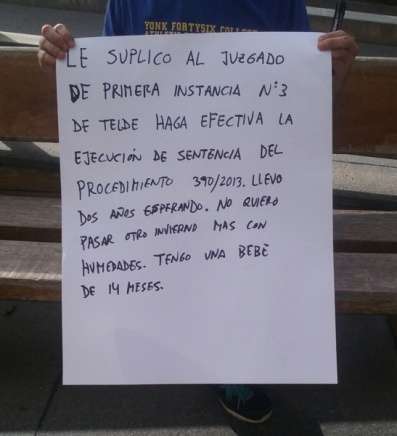 YONK FORTYSIX COLLEGE
LE SUPLICO AL JUZGADO
DE PRIMERA INSTANCIA Nº3
DE TELDE HAGA EFECTIVA LA
EJECUCIÓN DE SENTENCIA DEL
PROCEDIMIENTO 390/2013. LLEVO
DOS AÑOS ESPERANDO. NO QUIERO
PASAR OTRO INVIERNO MAS CON
HUMEDADES. TENGO UNA BEBÉ
DE 14 MESES.